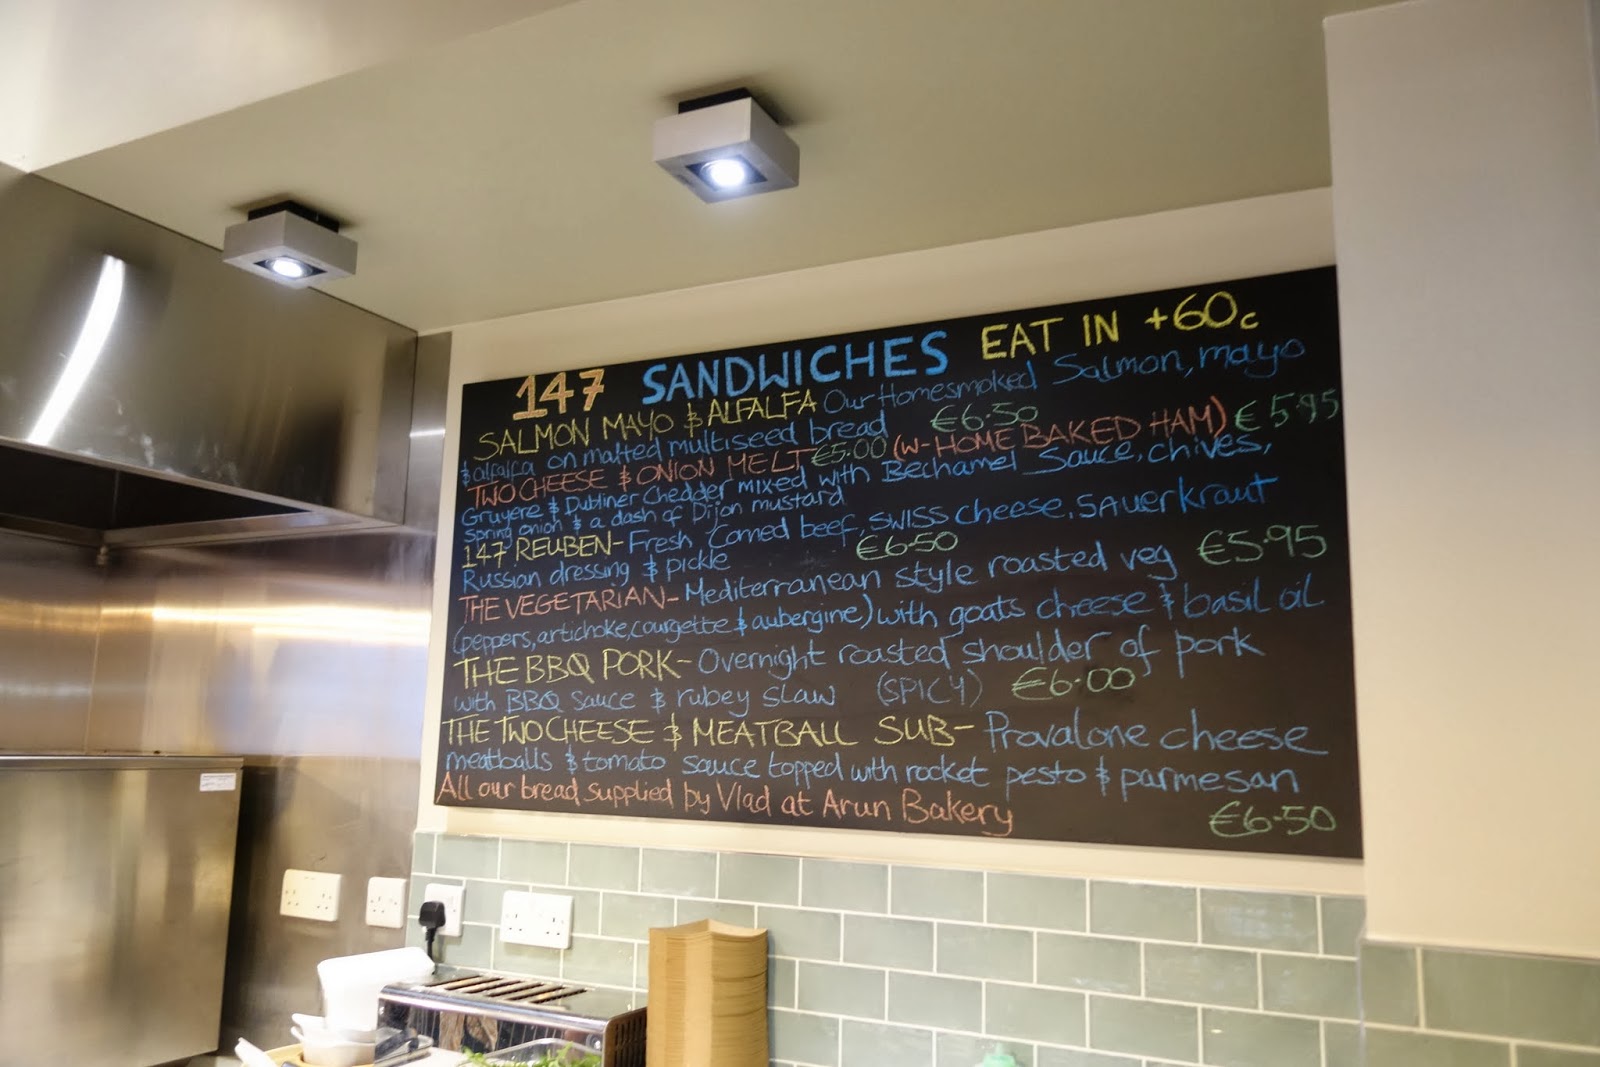 147 SANDWICHES EAT IN +60c
SALMON MAYO & ALFALFA Our Homesmoked Salmon, mayo
& alfalfa on malted multiseed bread €6.50
TWO CHEESE & ONION MELT €5.00 (W-HOME BAKED HAM) €5.95
Gruyere & Dubliner Chedder mixed with Bechamel Sauce, chives,
spring onion & a dash of Dijon mustard
147 REUBEN- Fresh Corned beef, SWISS cheese, SAUerkraut
Russian dressing & pickle €6.50
THE VEGETARIAN- Mediterranean style roasted veg €5.95
(peppers, artichoke, courgette & aubergine) with goats cheese & basil oil
THE BBQ PORK- Overnight roasted shoulder of pork
with BBQ sauce & rubey slaw (SPICY) €6.00
THE TWO CHEESE & MEATBALL SUB- Provalone cheese
meatballs & tomato sauce topped with rocket pesto & parmesan
All our bread supplied by Vlad at Arun Bakery €6.50